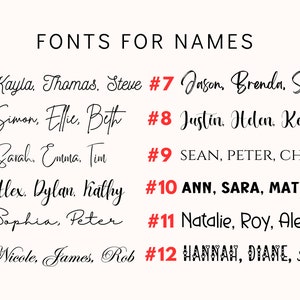 FONTS FOR NAMES
Kayla, Thomas, Steve #7 Jason, Brenda, S
Simon, Ellie, Beth #8 Justin, Helen, Ke
Sarah, Emma, Tim #9 SEAN, PETER, CH
Alex, Dylan, Kathy #10 ANN, SARA, MAT
Sophia, Peter #11 Natalie, Roy, Ale
Nicole, James, Rob #12 HANNAH, DIANE,